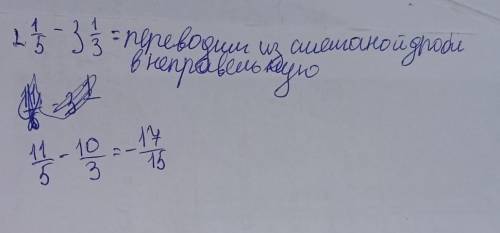 2 1/5 - 3 1/3 = переводим из смешаной дроби
в неправельную
11/5 - 10/3 = - 17/15